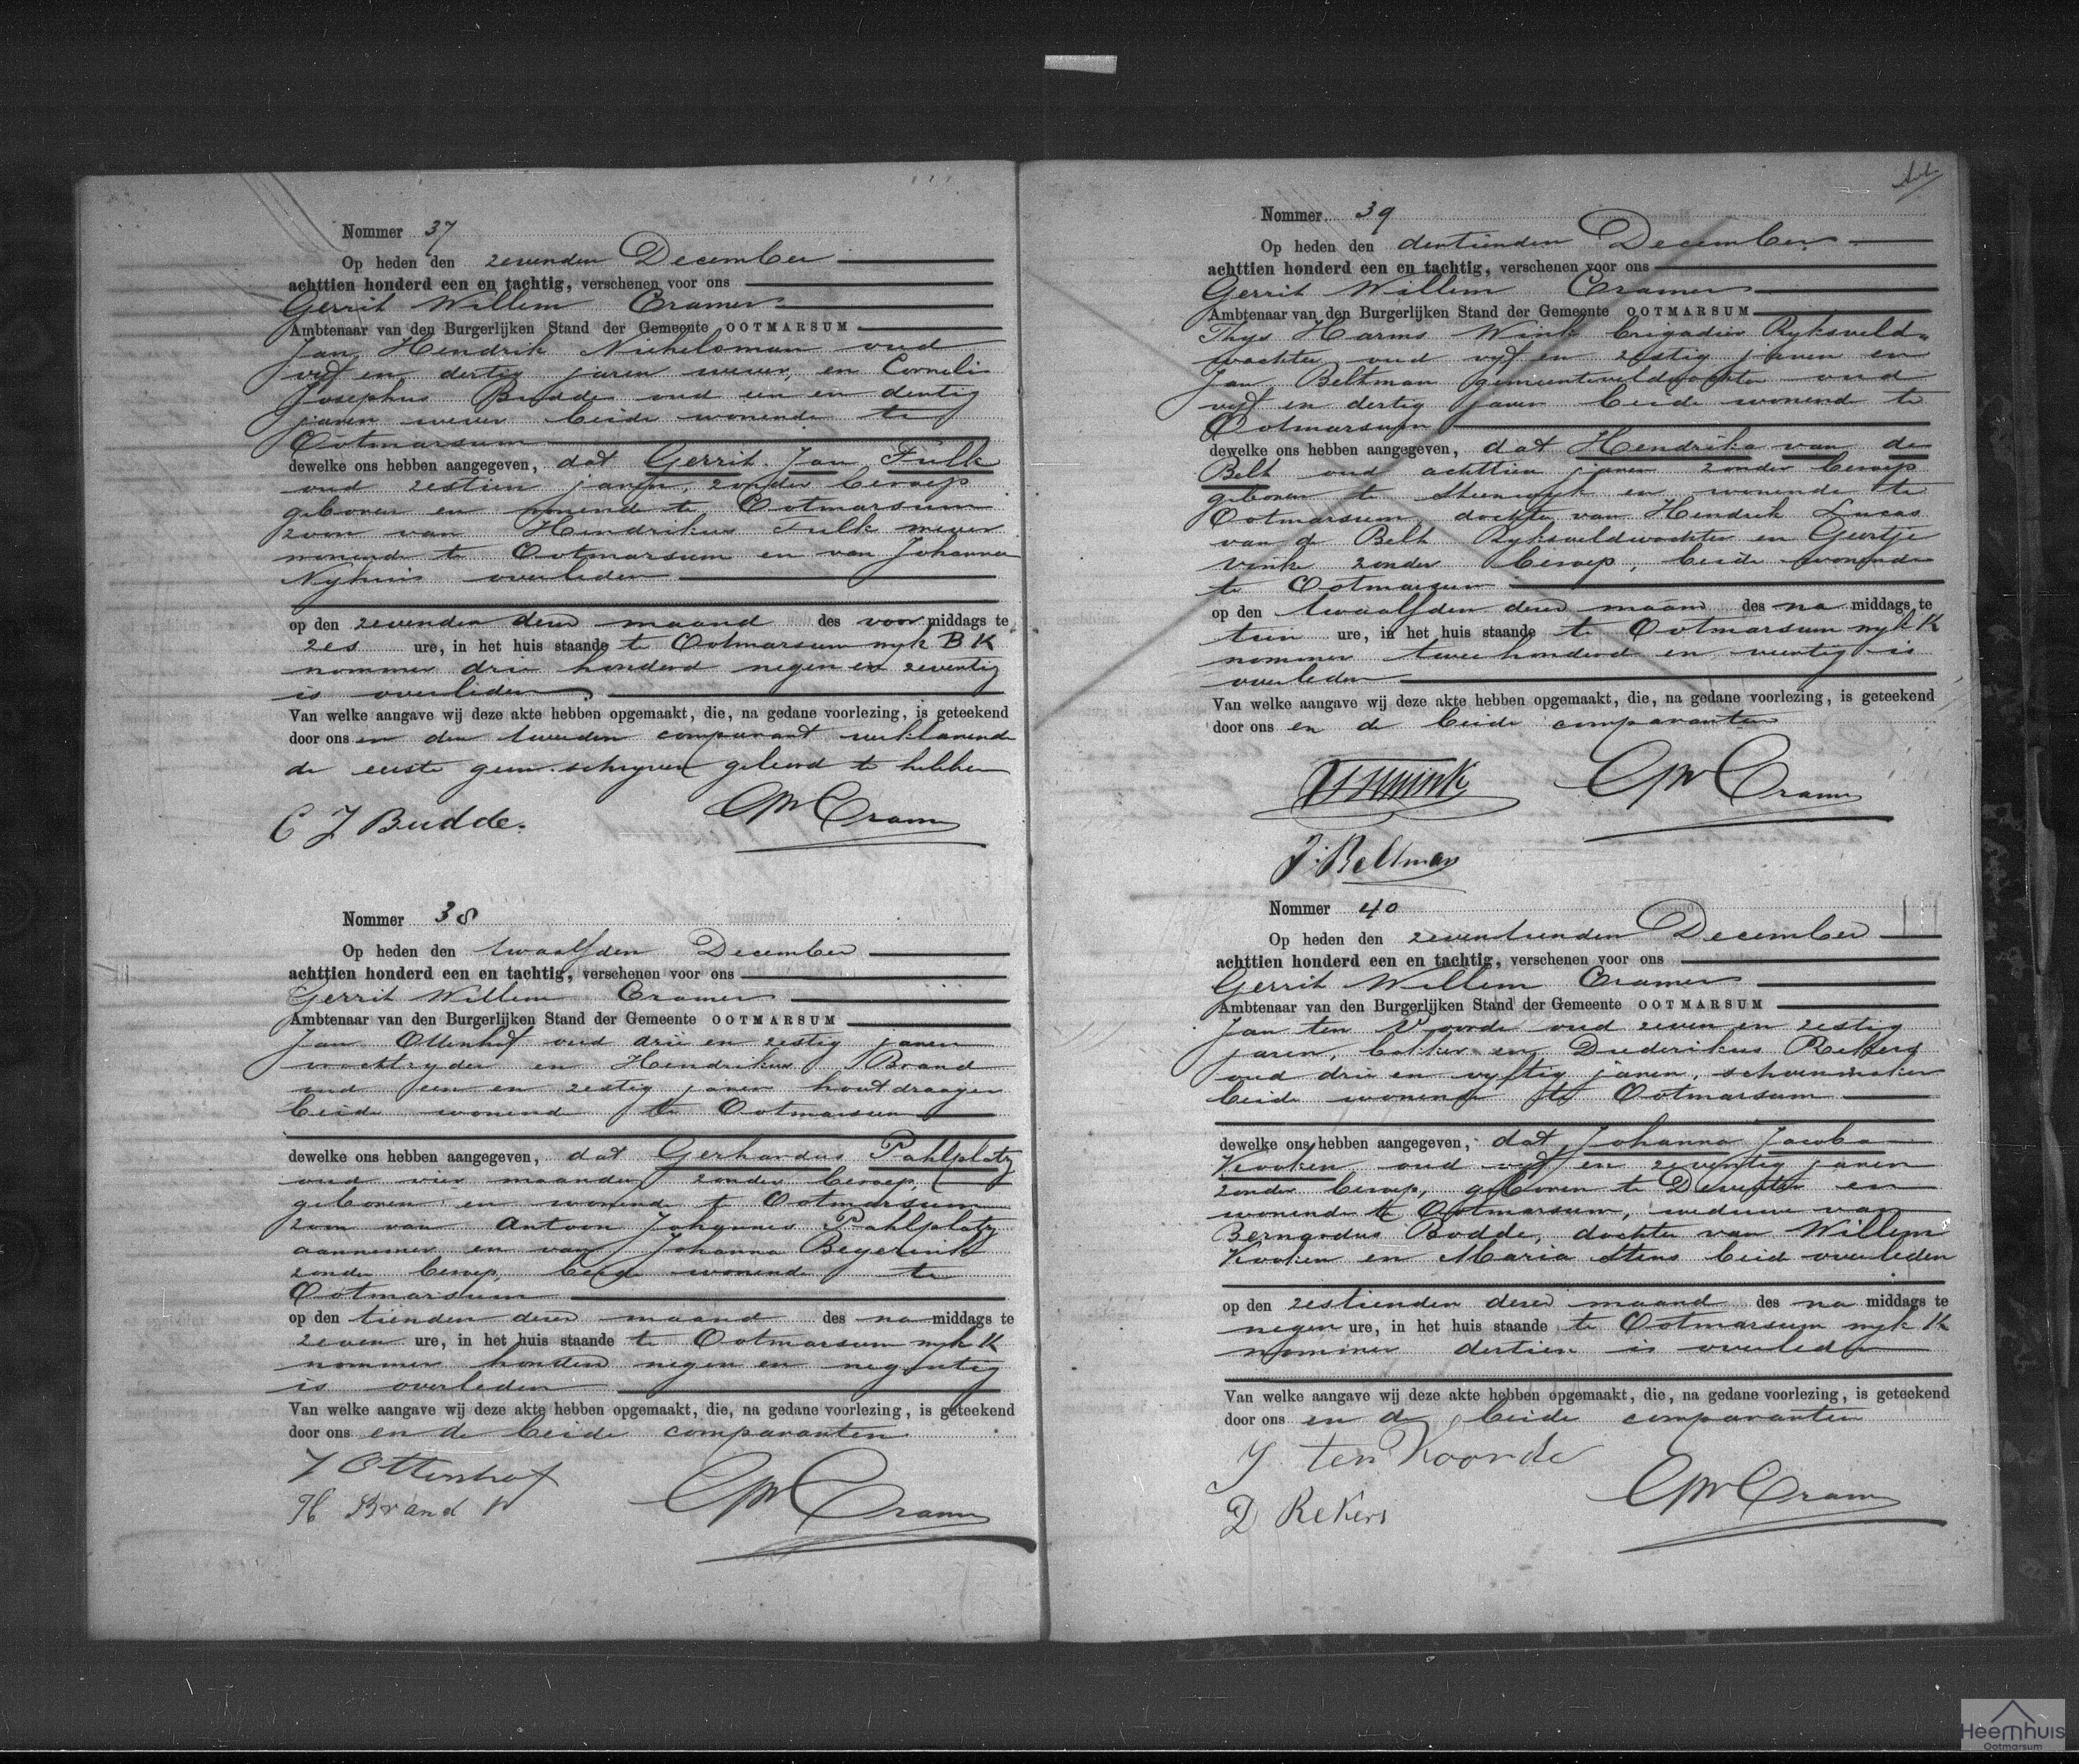 Nommer 37
Op heden den zevenden December
achttien honderd een en tachtig, verschenen voor ons
Gerrit Willem Cramer
Ambtenaar van den Burgerlijken Stand der Gemeente OOTMARSUM
Jan Hendrik Nichelsman oud
vyf en dertig jaren wever, en Cornelis
Josephus Budde oud een en dertig
jaren wever beide wonende te
Ootmarsum
dewelke ons hebben aangegeven, dat Gerrit Jan Fulk
oud zestien jaren, zonder beroep
geboren en wonende te Ootmarsum
zoon van Hendrikus Fulk wever
wonende te Ootmarsum en van Johanna
overleden
op den zevenden dezer maand des voor middags te
zes ure, in het huis staande te Ootmarsum wyk B K
nommer drie honderd negen en zeventig
is overleden
Van welke aangave wij deze akte hebben opgemaakt, die, na gedane voorlezing, is geteekend
door ons en den tweeden comparant verklarende
de eerste geen schryven geleerd te hebben
C J Budde. GW Cramer
Nommer 38
Op heden den twaalfden December
achttien honderd een en tachtig, verschenen voor ons
Gerrit Willem Cramer
Ambtenaar van den Burgerlijken Stand der Gemeente OOTMARSUM
Jan Ottenhof oud drie en zestig jaren
vrachtryder en Hendrikus Brand
oud een en zestig jaren houtdraager
beide wonende te Ootmarsum
dewelke ons hebben aangegeven, dat Gerhardus Pahlplatz
oud vier maanden zonder beroep,
geboren en wonende te Ootmarsum
zoon van Antoon Johannes Pahlplatz
aannemer en van Johanna Beyerink
zonder beroep, beide wonende te
Ootmarsum
op den tienden dezer maand des na middags te
zeven ure, in het huis staande te Ootmarsum wyk K
nommer honderd negen en negentig
is overleden
Van welke aangave wij deze akte hebben opgemaakt, die, na gedane voorlezing, is geteekend
door ons en de beide comparanten
J Ottenhof
H Brand GW Cramer
Nommer 39
Op heden den dertienden December
achttien honderd een en tachtig, verschenen voor ons
Gerrit Willem Cramer
Ambtenaar van den Burgerlijken Stand der Gemeente OOTMARSUM
Thys Harms Wink brigadier Ryksveld-
wachter oud vyf en zestig jaren en
Jan Beltman gemeenteveldwachter oud
vyf en dertig jaren beide wonende te
Ootmarsum
dewelke ons hebben aangegeven, dat Hendrika van de
Belt oud achttien jaren zonder beroep
geboren te Steenwyk en wonende te
Ootmarsum, dochter van Hendrik Lucas
van de Belt Ryksveldwachter en Geertje
Vink zonder beroep, beide wonende
te Ootmarsum
op den twaalfden dezer maand des na middags te
tien ure, in het huis staande te Ootmarsum wyk K
nommer tweehonderd en veertig is
overleden
Van welke aangave wij deze akte hebben opgemaakt, die, na gedane voorlezing, is geteekend
door ons en de beide comparanten
THWink GW Cramer
J. Beltman
Nommer 40
Op heden den zeventienden December
achttien honderd een en tachtig, verschenen voor ons
Gerrit Willem Cramer
Ambtenaar van den Burgerlijken Stand der Gemeente OOTMARSUM
Jan ten Voorde oud zeven en zestig
jaren, bakker en Diederikus Rekers
oud drie en vyftig jaren, schoenmaker
beide wonende te Ootmarsum
dewelke ons hebben aangegeven, dat Johanna Jacoba
Kooken oud vyf en zeventig jaren
zonder beroep, geboren te Deventer en
wonende te Ootmarsum, weduwe van
Bernardus Bodde, dochter van Willem
Kooken en Maria Stens beid overleden
op den zestienden dezer maand des na middags te
negen ure, in het huis staande te Ootmarsum wyk K
nommer dertien is overleden
Van welke aangave wij deze akte hebben opgemaakt, die, na gedane voorlezing, is geteekend
door ons en de beide comparanten
J ten Voorde
D Rekers GW Cramer
Heemhuis
Ootmarsum